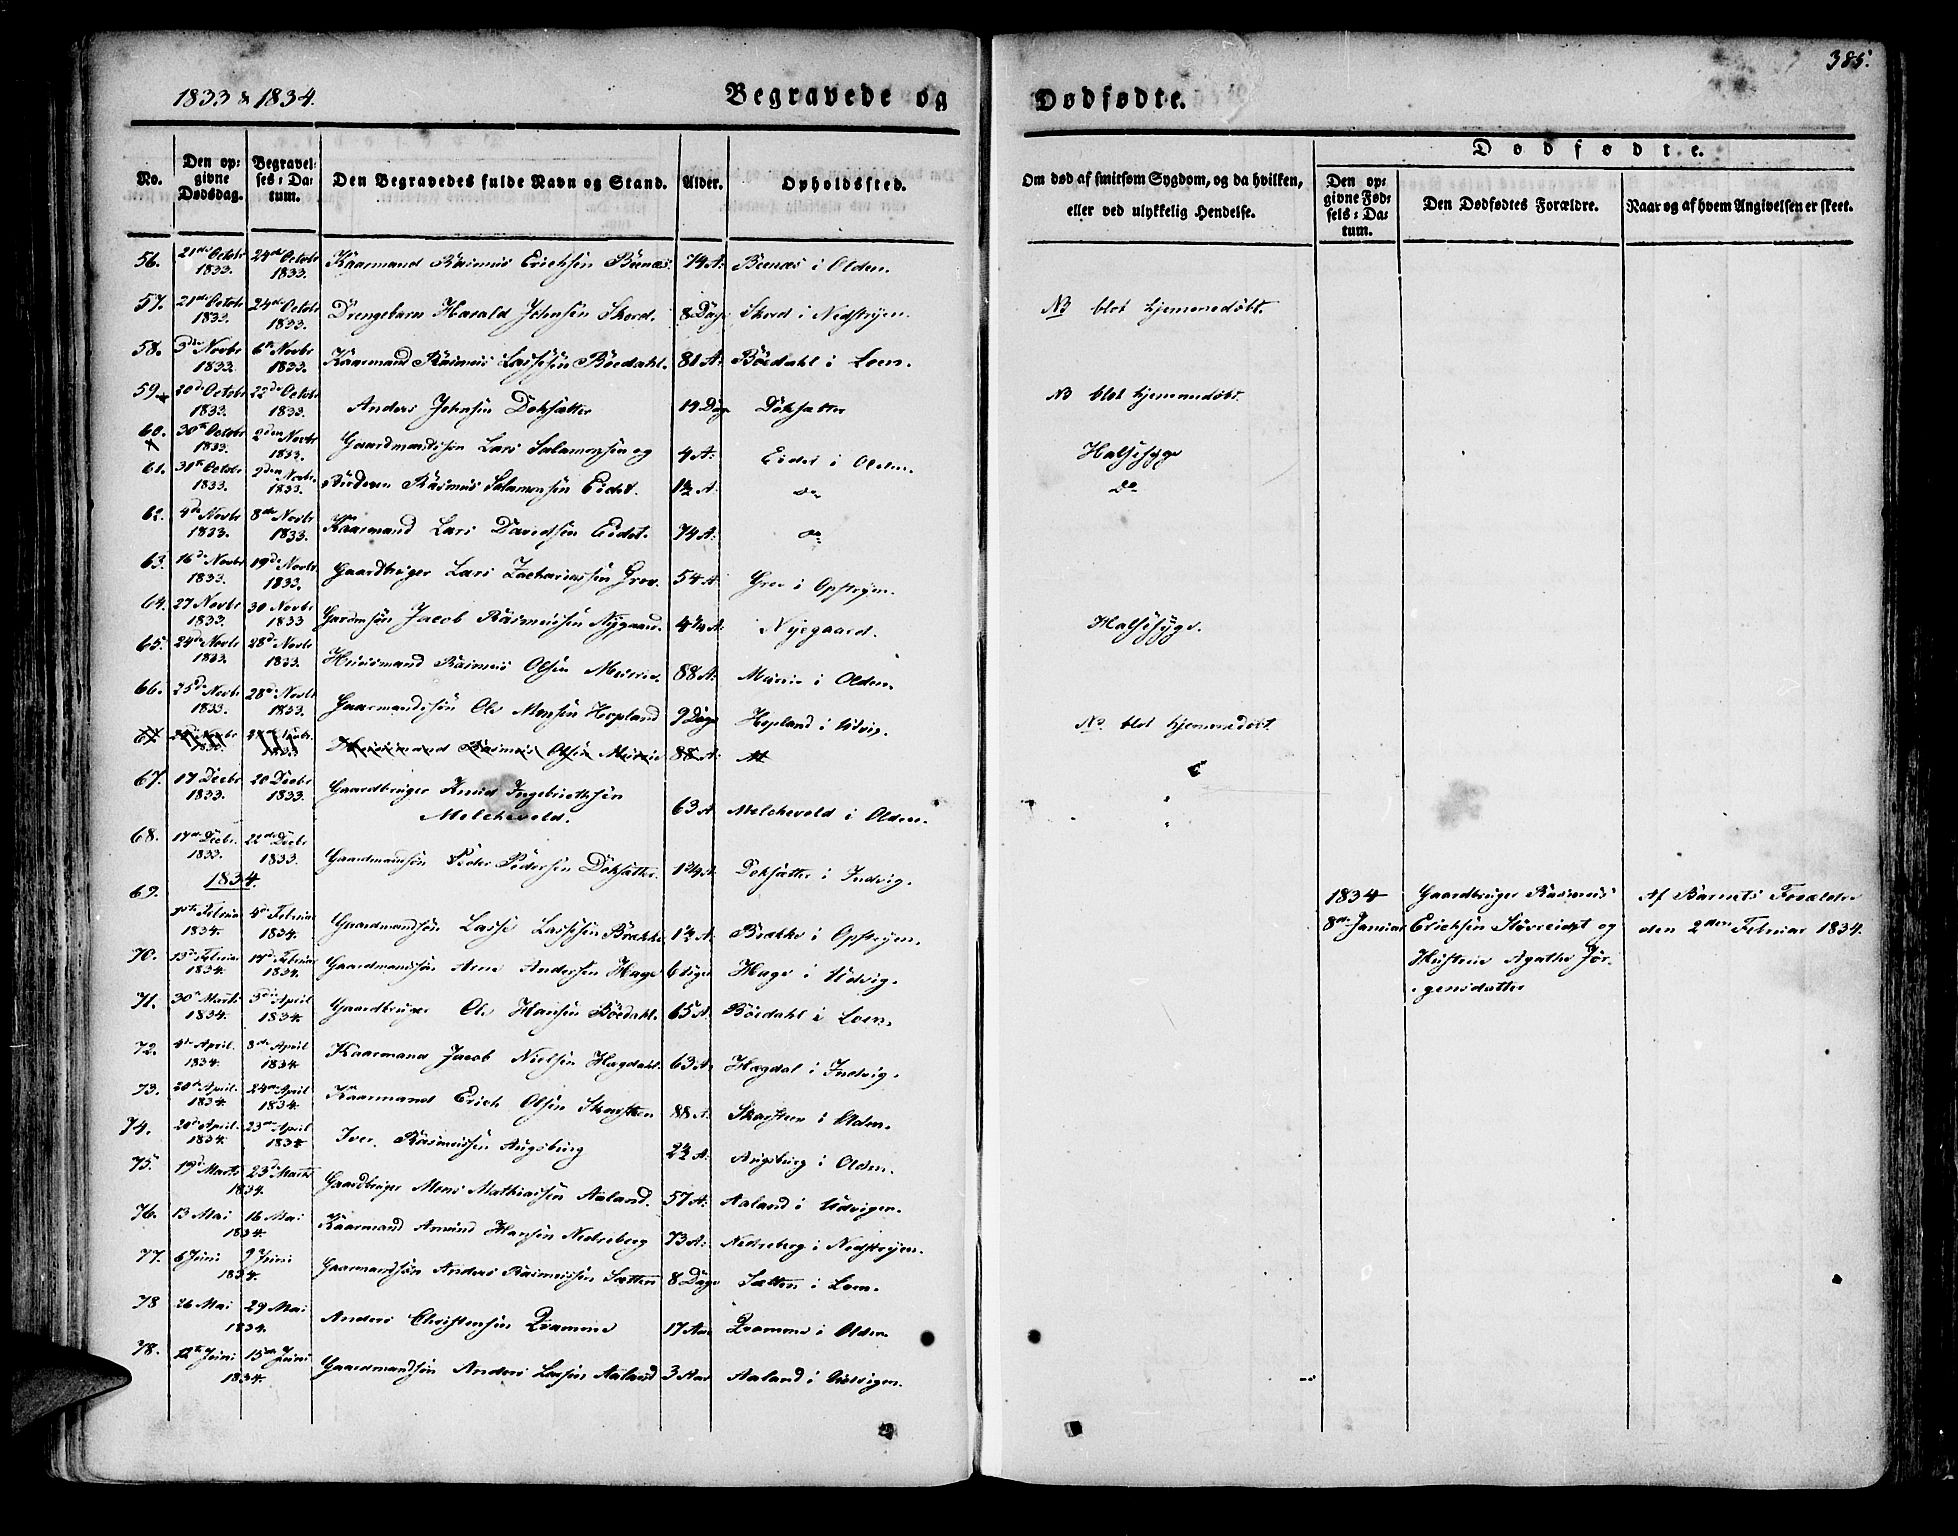 385.
1833 & 1834.
Begravede og Dødfødte.
Dødfødte.
No.
Den opgivne Dødsdag.
Begravelses-Datum.
Den Begravedes fulde Navn og Stand.
Alder.
Opholdssted.
Om død af smitsom Sygdom, og da hvilken, eller ved ulykkelig Hendelse.
Den opgivne Fødsels-Datum.
Den Dødfødtes Forældre.
Naar og af hvem Angivelsen er skeet.
56. 21de Octobr 1833. 24de Octobr 1833. Kaarmand Rasmus Erichsen Beenæs 74 A: Beenæs i Olden.
57. 21de Octobr 1833. 24de Octobr 1833. Drengebarn Harald Johnsen Skord. 8 Dage Skord i Nedstryen. NB blot hjemmedøbt.
58. 3die Novbr 1833. 6te Novbr 1833. Kaarmand Rasmus Lassesen Bøedahl. 81 A: Bøedahl i Loen.
59. 20de Octobr 1833. 22de Octobr 1833. Anders Johnsen Døksætter 14 Dage Døksætter NB blot hjemmedøbt.
60. 30te Octobr 1833. 2den Novbr 1833. Gaardmandssøn Lars Salamonsen og 4 A: Eidet i Olden. Halssyge
61. 31te Octobr 1833. 2den Novbr. 1833. Broderen Rasmus Salamonsen Eidet. 1½ A. do Do
62. 4de Novbr 1833. 8de Novbr 1833. Kaarmand Lars Davidsen Eidet. 74 A: do
63. 16de Novbr 1833. 19de Novbr 1833. Gaardbruger Lars Zachariassen Grov. 54 A: Grov i Opstryen.
64. 27 Novbr 1833. 30 Novbr 1833 Gaardmsøn Jacob Rasmussen Nygaard. 4¼ A: Nyegaard. Halssyge.
65. 24de Novbr 1833. 28de Novbr 1833. Huusmand Rasmus Olsen Muurie. 88 A: Muurie i Olden.
66. 25de Novbr 1833. 28de Novbr 1833. Gaarmandssøn Ole Monsen Hopland 9 Dage Hopland i Udvig. No. blot hjemmedøbt
Huusmand Rasmus Olsen Muurie 88 A:
67. 17 Decbr 1833. 20 Decbr 1833. Gaardbruger Knud Ingebrethsen
Melchevold. 63 A Melchevold i Olden.
68. 17de Decbr. 1833. 22de Decbr 1833. Gaardmandsøn Peder Pedersen Døksætter. 1¾ A. Doksætter i Indvig.
1834.
69. 1ste Februar 1834. 4de Februar 1834. Gaardmandsøn Lasse Lassesen Brække 1½ A. Brække i Opstryen.
1834 8de Januar Gaardbruger Rasmus
Erichsen Støvreidet og
Hustrue Agathe Jør-
gensdatter
Af Barnets Forældre
den 2den Februar 1834.
70. 13de Februar 1834. 17de Februar 1834. Gaardmandssøn Arne Andersen Hage 6 dage Hage i Udvig.
71. 30te Marts 1834. 3die April 1834. Gaardbruger Ole Hansen Bøedahl. 65 A. Bøedahl i Loen.
72. 4de April. 1834. 8de April 1834. Kaarmand Jacob Nielsen Hægdahl. 63 A. Hægdal i Indvig.
73. 20de April. 1834. 24de April 1834. Kaarmand Erich Olsen Skarsteen 88 A. Skarsteen i Olden.
74. 20de April. 1834. 23de April 1834. Iver Rasmussen Augsburg 2½ A. Augsburg i Olden.
75. 19de Marts 23de Marts 1834. Gaardbruger Mons Mathiassen Aaland. 57 A. Aaland i Udvigen.
76. 13 Mai 16 Mai 1834. Kaarmand Amund Hansen Nedreberg 73 A: Nedreberg i Nedstryen.
77. 6 Juni 9 Juni 1834. Gaarmandsøn Anders Rasmussen Sætten 8 Dage Sætten i Loen.
78 26 Mai 29 Mai 1834. Anders Christensen Qvamme 17 Aar Qvamme i Olden
78. 12te Juni 15de Juni 1834. Gaardmandsøn Anders Lassen Aaland 3 Aar Aaland i Udvigen.